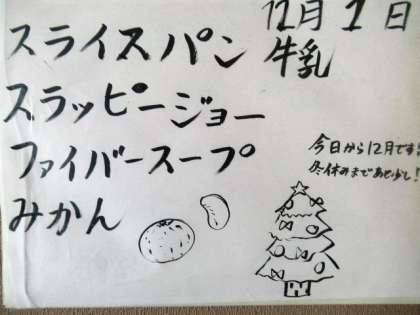 12月1日
スライスパン
牛乳
スラッピージョー
ファイバースープ
みかん
今日から12月です!
冬休みまであと少し!